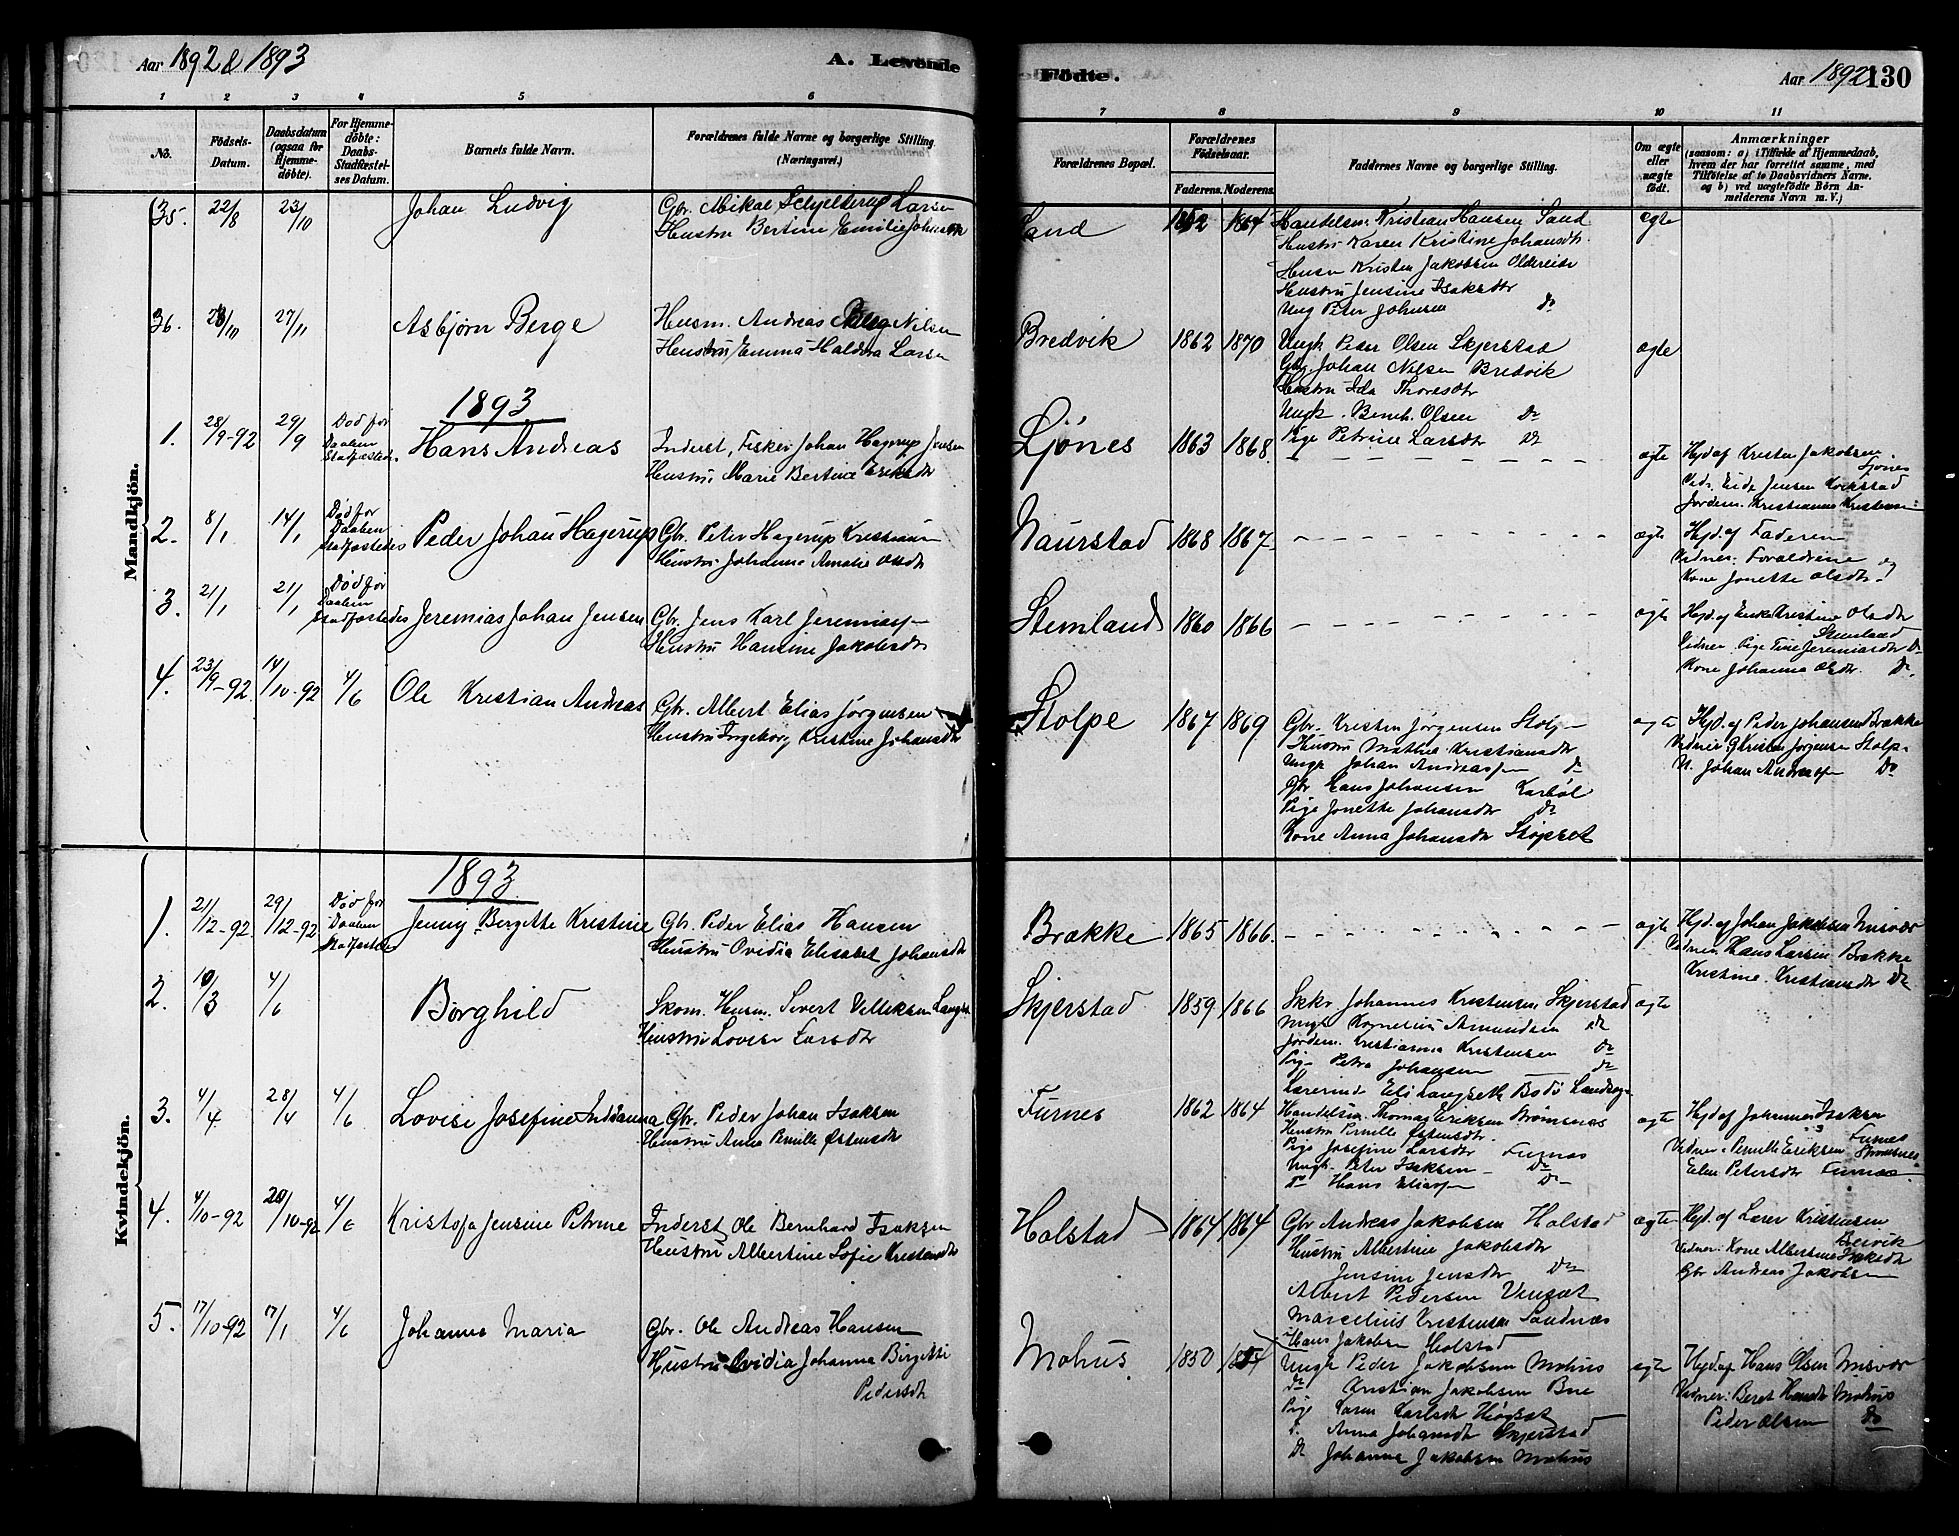 Aar 1892 & 1893
A. Levende
Fødte.
Aar 1892
130
1 2 3 4 5 6 7 8 9 10 11
No.
Födsels-Datum.
Daabsdatum (ogsaa for Hjemmedöbte).
For Hjemmedöbte: Daabs-Stadfæstelses Datum.
Barnets fulde Navn.
Forældrenes fulde Navne og borgerlige Stilling. (Næringsvei.)
Forældrenes Bopæl.
Forældrenes Födselsaar.
Faderens. Moderens.
Faddernes Navne og borgerlige Stilling.
Om ægte eller uægte födt.
Anmærkninger
(saasom: a) i Tilfælde af Hjemmedaab, hvem der har forrettet samme, med Tilföielse af to Daabsvidners Navne, og b) ved uægtefödte Börn Anmelderens Navn m. V.)
Mandkjön.
35. 22/8 23/10 Johan Ludvig
Gbr. Mikal Schjelderup Larsen
Hustru Bertine Emilie Johnsen
Sand 1852 1864
Handelsm. Kristian Hansen Sand
Hustru Karen Kristine Johansdtr
Husm Kristen Jakobsen Oldereide
Hustru Jensine Isaksdtr
Ung Peter Johnsen Do
ægte
36. 28/10 27/11 Asbjørn Berge
Husm. Andreas Nilsen
Hustru Emma Haldora Larsen
Bredvik 1862 1870
Ungk Peder Olsen Skjerstad
Gbr. Johan Nilsen Bredvik
Hustru Ida Thoresdtr
Ungk. Bernh. Olsen Do
Pige Petrine Larsdtr Do
ægte
1893
1. 28/9-92 29/9 Død før Daaben stadfæstedes. Hans Andreas
Inderst, Fisker Johan Hagerup Jensen
Hustru Marie Bertine Eriksdtr
Ljönes 1863 1868. ægte
Hjd af Kristen Jakobsen Ljönes
Jordem. Kristianna Kristensen
2. 8/1 14/1 Død før Daaben stadfæstedes Peder Johan Hagerup
Gbr. Peter Hagerup Kristiansen
Hustru Johanna Amalie Olsdtr
Naurstad 1868 1867 ægte
Hjd. af Faderen
Vidner: Forældrene og
Kone Jonette Olsdtr
3. 21/1 21/1 Død før Daaben stadfæstedes Jeremias Johan Jensen
Gbr. Jens Karl Jeremiass.
Hustru Hansine Jakobsdtr
Stemland 1860 1866 ægte
Hjd. af Enke Kristine Olsdtr Stemland
Vidner Pige Tine Jeremiasdtr Do
Kone Johanna Olsdtr. Do.
4. 23/9-92 14/10-92 4/6 Ole Kristian Andreas
Gbr. Albert Elias Jørgensen
Hustru Ingeborg Kristine Johansdtr
Stolpe 1867 1869
Gbr. Kristen Jørgensen Stolpe
Hustru Mathea Kristiansdtr
Ungk Johan Andreassen Do
Gbr Hans Johansen Karbøl
Pige Jonette Johansdtr Do
Kone Anna Johansdtr Støpset
ægte
Hjd. af Peder Johansen Brække
Vidner G Kristen Jørgensen Stolpe
U. Johan Andreassen Do
Kvindekjön.
1893
1. 21/12-92 29/12-92 Død før Daaben stadfæstedes Jenny Bergitte Kristine
Gbr. Peder Elias Hansen
Hustru Ovidia Elisabet Johansdtr
Brække 1865 1866. ægte
Hjd. af Johan Jakobsen Misvær
Vidner. Hans Larsen Brække
Kristine Kristiansdtr Do
2. 10/3 4/6 Borghild
Skom. Husm. Sivert Langset
Hustru Lovise Larsdtr
Skjerstad 1859 1866
Skkr Johannes Kristensen Skjerstad
Ungk Kornelius Amundsen Do
Jordem. Kristianna Kristensen Do
Pige Petra Johansen Do
Lærerinde Eli Langseth Bodö Landsogn
ægte
3. 4/4 28/4 4/6 Lovise Josefine Indianna
Gbr. Peder Johan Isaksen
Hustru Anna Pernille Østensdtr
Furnes 1862 1864
Handelsm. Thomas Eriksen Strømsnes
Hustru Pernille Østensdtr.
Pige Josefine Larsdtr Furnes
Ungk. Peter Isaksen Do
Do Hans Eliassen Do
ægte
Hjd af Johannes Isaksen Furnes
Vidner: Pernille Eriksen Strømsnes
Elen Petersdtr Furnes
4. 4/10-92 20/10-92 4/6 Kristofa Jensine Petrine
Inderst Ole Bernhard Isaksen
Hustru Albertine Sofie Kristensdtr
Holstad 1864 1864
Gbr Andreas Jakobsen Holstad
Hustru Albertine Jakobsdtr
Jensine Jensdtr Do
Albert Pedersen Vengset
Marcelius Kristensen Sandnæs
Hans Jakobsen Holstad
ægte
Hjd. af Lærer Kristensen
Vidner: Kone Albertine Isaksdtr
Gbr Andreas Jakobsen
5. 17/10-92 17/1 4/6 Johanna Maria
Gbr. Ole Andreas Hansen
Hustru Ovidia Johanna Birgitte Pedersdtr
Mohus 1850 1857
Ungk Peder Jakobsen Mohus
Do Kristian Jakobsen Bue
Pige Karen Karlsdtr Høgset
P. Anna Johansdtr Skjerstad
Do Johanna Jakobsen Mohus
ægte
Hjd. af Hans Olsen Misvær
Vidner: Beret Hansdtr Mohus
Peder Olsen Do